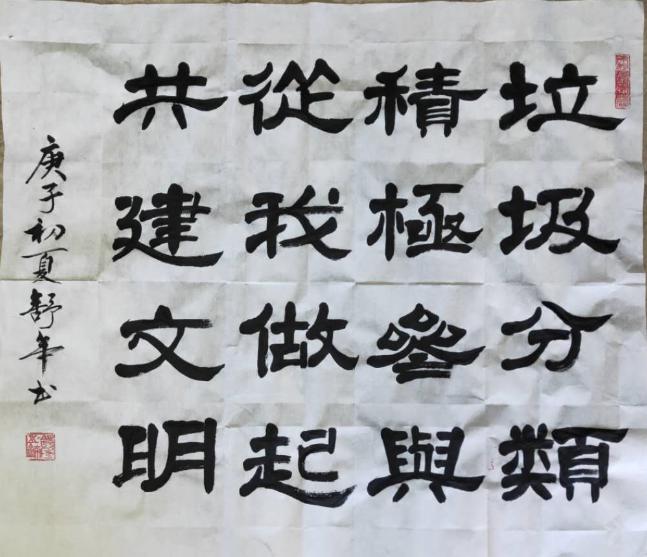 垃圾分類
積極參與
從我做起
共建文明
庚子初夏舒年书